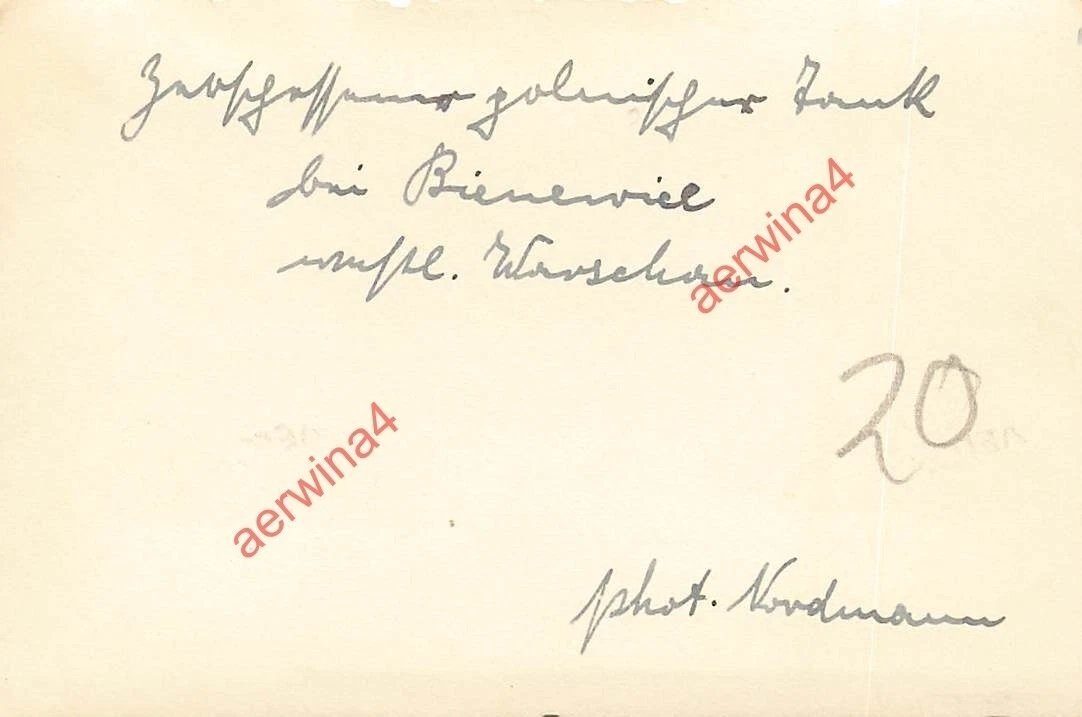 Zerschossener polnischer Tank
bei Bienewiec
westl. Warschau.
aerwina4
20
aerwina4
phot. Nordmann